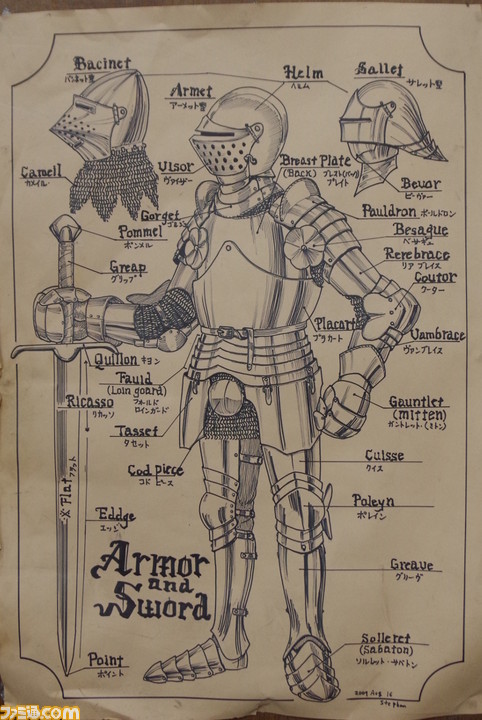 Bacinet
バシネット型
Armet
アーメット型
Helm
ヘルム
Sallet
サレット型
Camell
カメイル
Ulsor
ヴァイザー
Breast Plate
(Back) ブレスト(バック)
プレイト
Bevor
ビーヴァー
Gorget ゴルゲット
Pauldron ポールドロン
Pommel
ポンメル
Besague
ベサギュー
Rerebrace
リアブレイス
Greap
グリップ
Coutor
クーター
Placart
プラカート
Vambrace
ヴァンブレイス
Quillon キヨン
Fauld
(Loin goard)
フォールド
ロインガード
Ricasso
リカッソ
Gauntlet
(mitten)
ガントレット(ミトン)
Tasset
タセット
Cuisse
クイス
Cod piece
コドピース
※Flat フラット
Poleyn
ポレイン
Eddge
エッジ
Armor
and
Sword
Greave
グリーヴ
Solleret
(Sabaton)
ソルレット・サバトン
Point
ポイント
2009 Aug 16
ファミ通.com